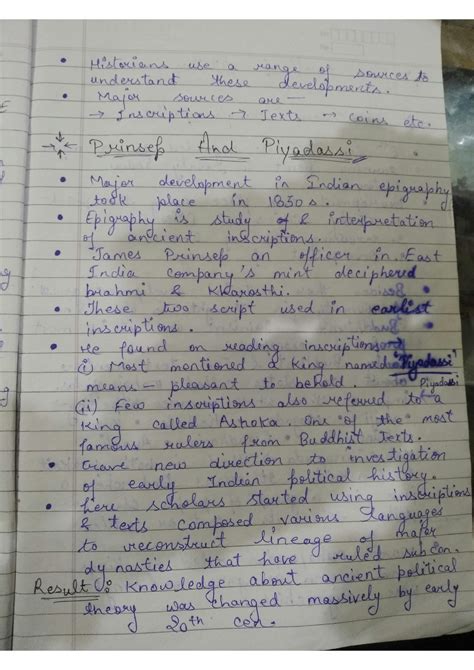 • Historians use a range of sources to
understand these developments.
• Major sources are —
→ Inscriptions → Texts → coins etc.
Prinsep And Piyadassi
• Major development in Indian epigraphy
took place in 1850s.
• Epigraphy is study of & interpretation
of ancient inscriptions.
• James Prinsep an officer in East
India company's mint deciphered
brahmi & Kharosthi.
• These two script used in earliest
inscriptions.
• He found on reading inscriptions
(i) Most mentioned a king named "Piyadassi"
means — pleasant to behold. Piyadassi
(ii) Few inscriptions also referred to a
king called Ashoka. One of the most
famous rulers from Buddhist Texts.
• Gave new direction to investigation
of early Indian political history.
• here scholars started using inscriptions
& texts composed various languages
to reconstruct lineage of major
dynasties that have ruled subcon.
Result : Knowledge about ancient political
theory was changed massively by early
20th cen.